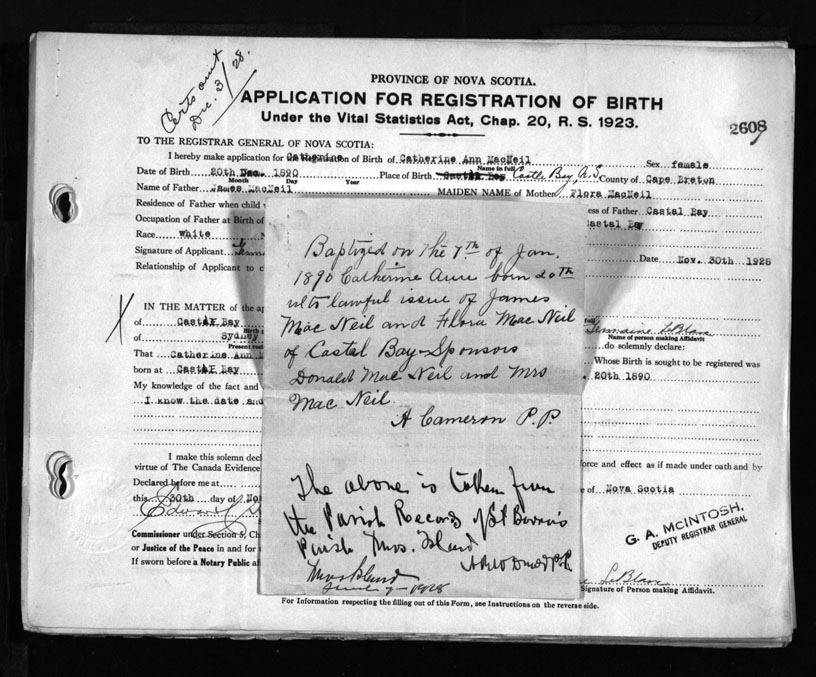 Certs out
Dec. 3/28.
PROVINCE OF NOVA SCOTIA.
APPLICATION FOR REGISTRATION OF BIRTH
Under the Vital Statistics Act, Chap. 20, R. S. 1923.
2608
TO THE REGISTRAR GENERAL OF NOVA SCOTIA:
I hereby make application for Registration of Birth of Catherine Ann MacNeil Sex female
Name in full
Date of Birth 20th Dec. 1890 Place of Birth Castle Bay, N.S County of Cape Breton
Month Day Year
Name of Father James MacNeil MAIDEN NAME of Mother Flora MacNeil
Residence of Father when child ess of Father Castal Bay
Occupation of Father at Birth of Castal Bay
Race White
Signature of Applicant Date Nov. 30th 1928
Relationship of Applicant to c
IN THE MATTER of the ap
of Castal Bay Germaine LeBlanc
of Sydney Name of person making Affidavit
do solemnly declare:
That Catherine Ann Whose Birth is sought to be registered was
born at Castal Bay 20th 1890
My knowledge of the fact and
I know the date and
I make this solemn decl orce and effect as if made under oath and by
virtue of The Canada Evidence
Declared before me at
this 30th day of No of Nova Scotia
Edward
Commissioner under Section 5, Ch
or Justice of the Peace in and for
If sworn before a Notary Public af
G. A. McINTOSH,
DEPUTY REGISTRAR GENERAL
LeBlanc
Signature of Person making Affidavit.
For Information respecting the filling out of this Form, see Instructions on the reverse side.
Baptized on the 7th of Jan.
1890 Catherine Ann born 20th
ulto lawful issue of James
Mac Neil and Flora Mac Neil
of Castal Bay-Sponsors
Donald Mac Neil and Mrs
Mac Neil.
A Cameron P.P.
The above is taken from
the Parish Records of St Barra's
Parish Xmas. Island
P.P.
Xmas Island
1928